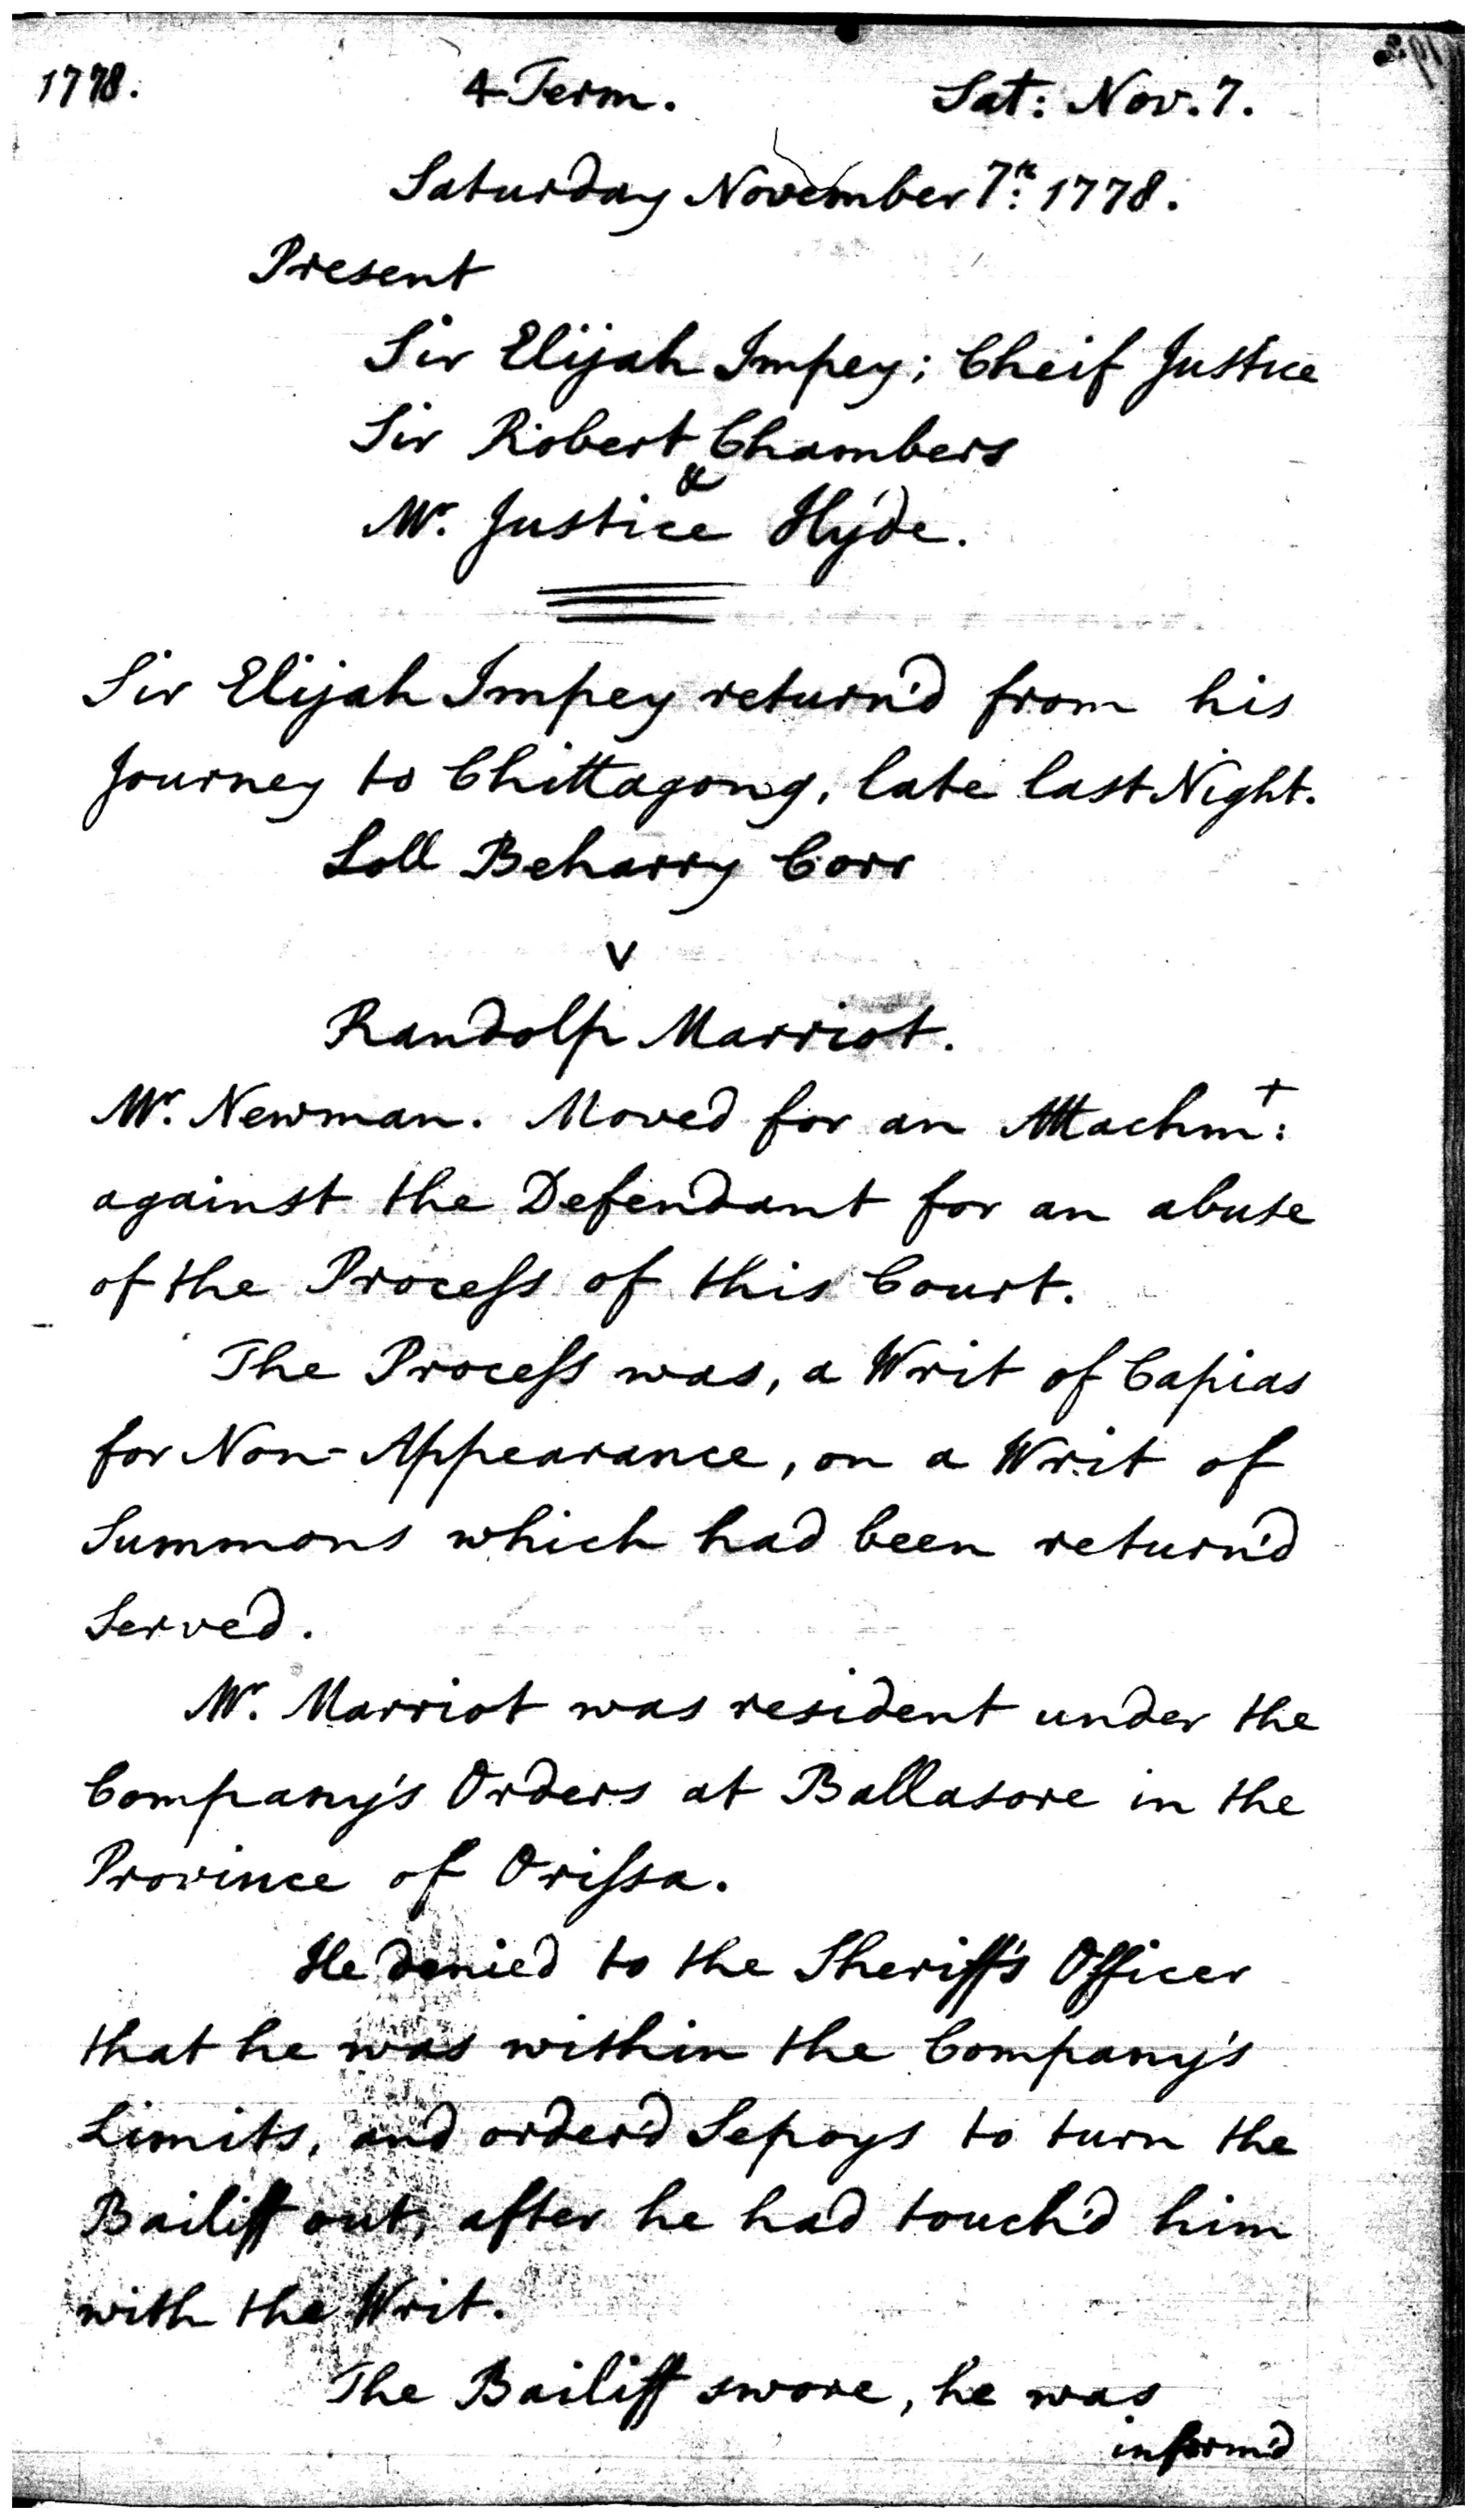 1778. 4 Term. Sat: Nov. 7.
Saturday November 7th: 1778.
Present
Sir Elijah Impey; Cheif Justice
Sir Robert Chambers
&
Mr. Justice Hyde.
Sir Elijah Impey return'd from his
Journey to Chittagong, late last Night.
Loll Beharry Corr
v
Randolp Marriot.
Mr. Newman. Moved for an Attachmt:
against the Defendant for an abuse
of the Process of this Court.
The Process was, a Writ of Capias
for Non-Appearance, on a Writ of
Summons which had been return'd
Served.
Mr. Marriot was resident under the
Company's Orders at Ballasore in the
Province of Orissa.
He denied to the Sheriff's Officer
that he was within the Company's
Limits, and order'd Sepoys to turn the
Bailiff out, after he had touch'd him
with the Writ.
The Bailiff swore, he was
inform'd